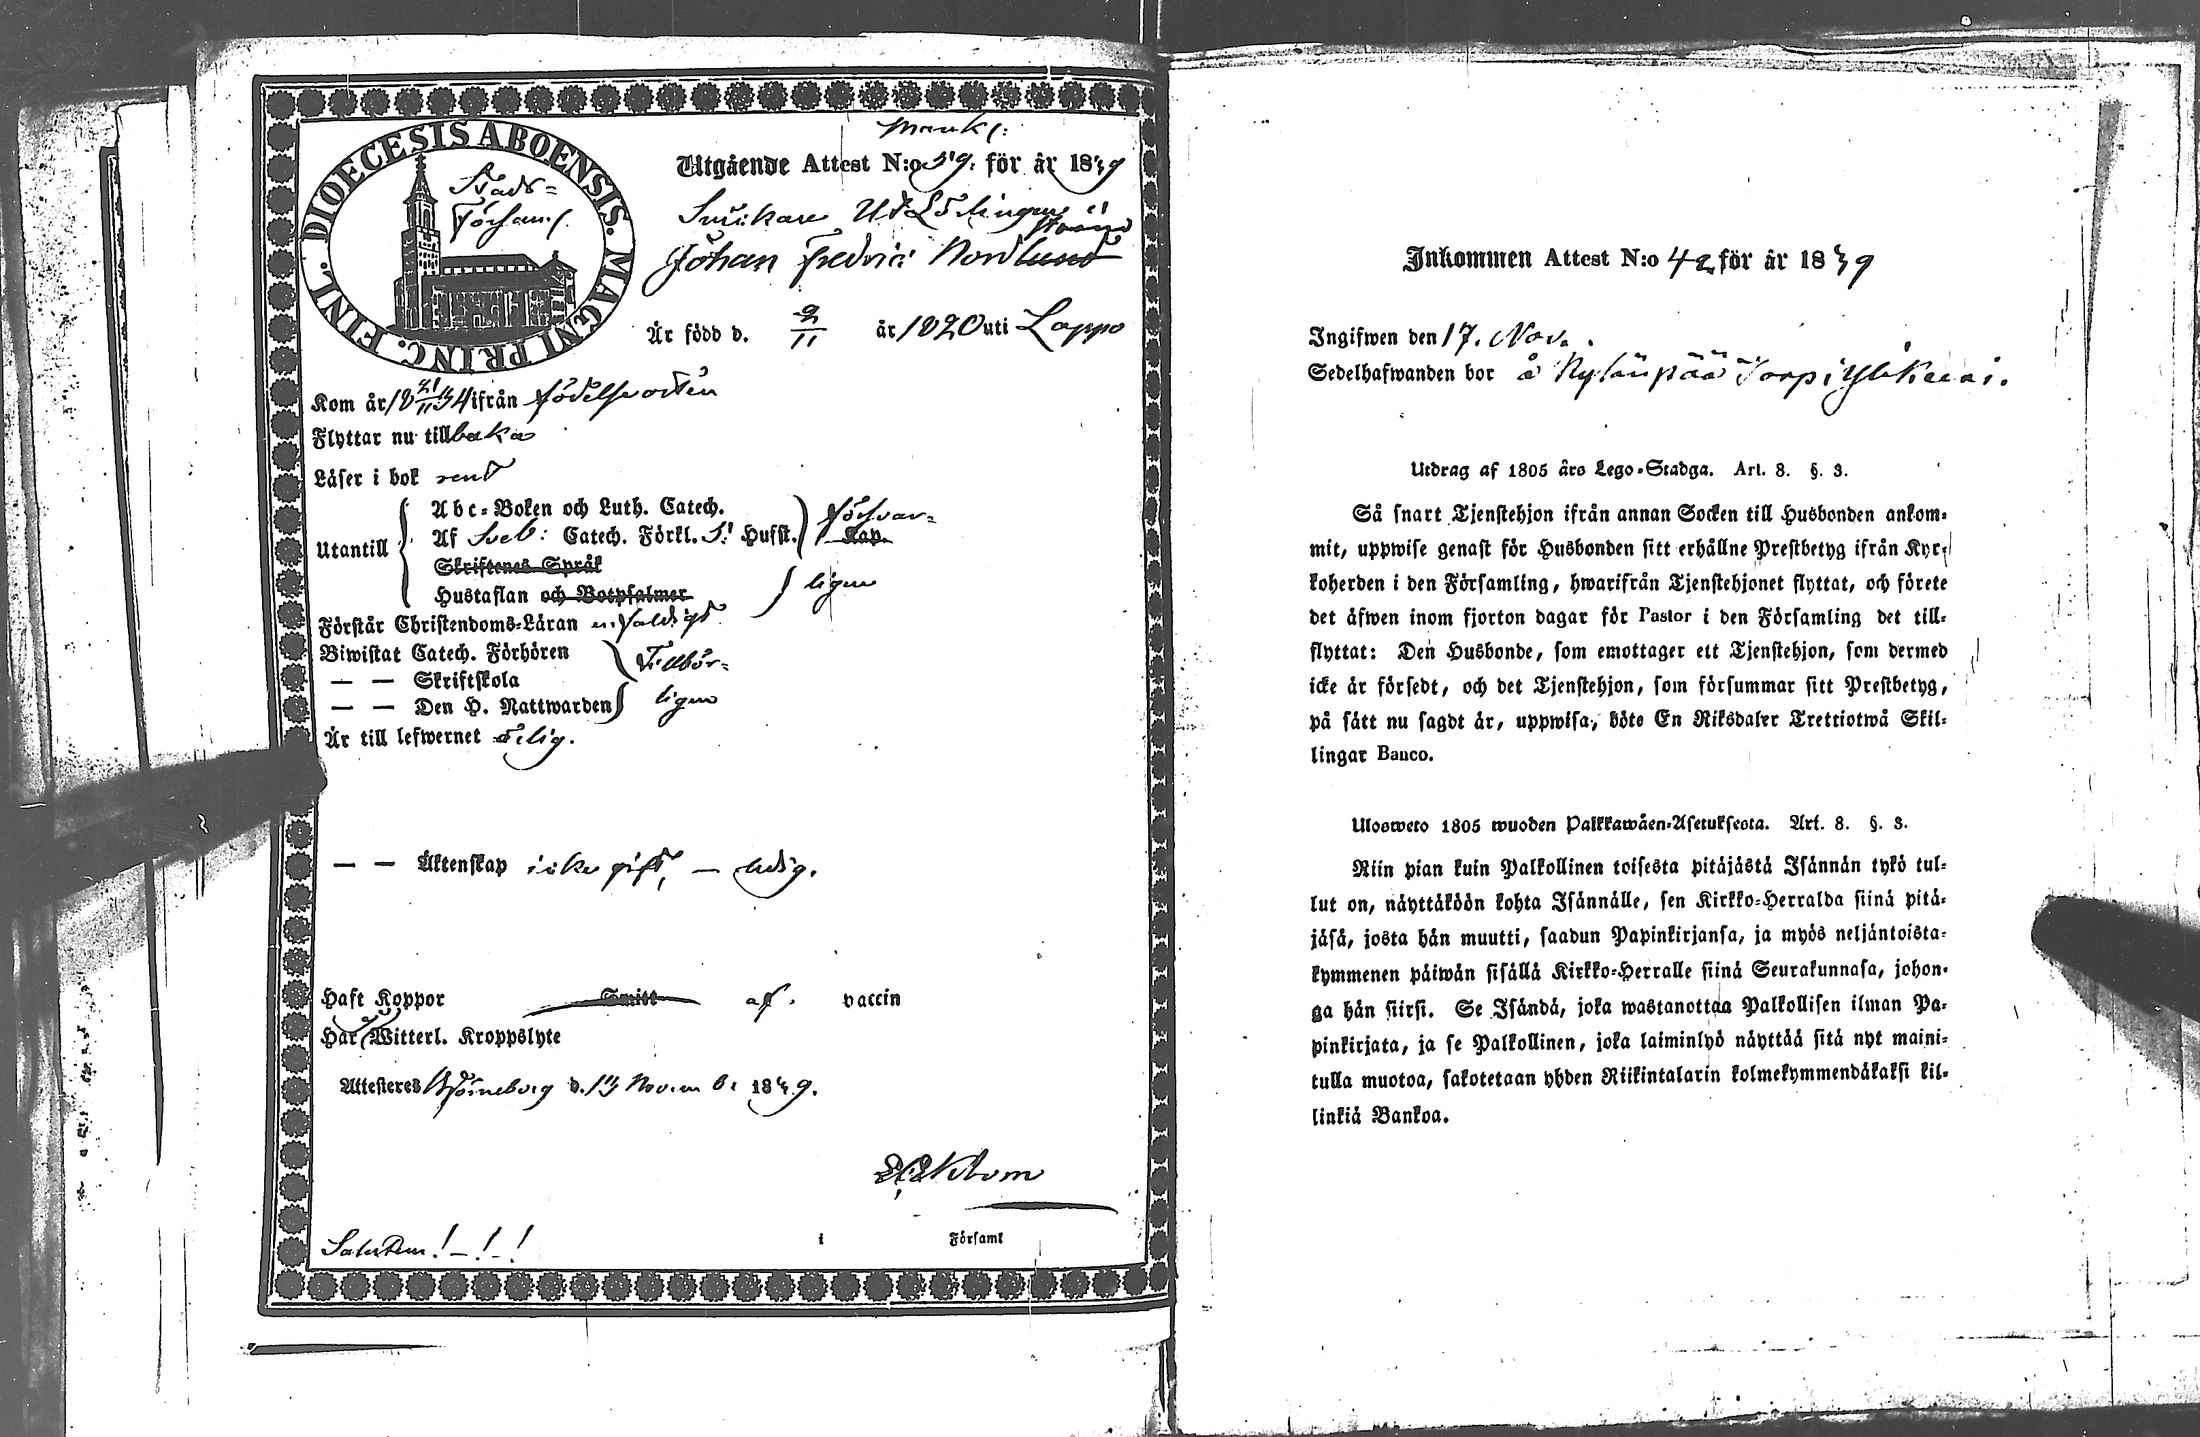 DIOECESIS ABOENSIS. MAGNI PRINC. FINL.
Stads=
Församl.
mankl:
Utgående Attest N:o 59. för år 1839
Snickare
Johan Fredric Nordlund
Är född d. 2/11 år 1820 uti Lappo
Kom år 18 21/11 34 ifrån födelseorten
Flyttar nu tillbaka
Läser i bok rent
Utantill
Abc-Boken och Luth. Catech.
Af Sveb: Catech. Förkl. S! Husst. Kap.
försvar=
Skriftenes Språk
Hustaflan och Botpsalmer
ligen
Förstår Christendoms-Läran enfaldigt
Biwistat Catech. Förhören
Tillbör=
— — Skriftskola
— — Den H. Nattwarden
ligen
Är till lefwernet
— — Äktenskap icke gift, — ledig.
Haft Koppor Smitt af. vaccin
Har Witterl. Kroppslyte
Attesteras Björneborg d. 13 Novemb: 1839.
Ekbom
Salutem! — ! — !
i Församl
Inkommen Attest N:o 42 för år 1839
Ingifwen den 17. Nov.
Sedelhafwanden bor å
Utdrag af 1805 års Lego-Stadga. Art. 8. §. 3.
Så snart Tjenstehjon ifrån annan Socken till Husbonden ankom-
mit, uppwise genast för Husbonden sitt erhållne Prestbetyg ifrån Kyr-
koherden i den Församling, hwarifrån Tjenstehjonet flyttat, och förete
det äfwen inom fjorton dagar för Pastor i den Församling det till-
flyttat: Den Husbonde, som emottager ett Tjenstehjon, som dermed
icke är försedt, och det Tjenstehjon, som försummar sitt Prestbetyg,
på sätt nu sagdt är, uppwisa, böte En Riksdaler Trettiotwå Skil-
lingar Banco.
Ulosweto 1805 wuoden Palkkawäen-Asetuksesta. Art. 8. §. 3.
Niin pian kuin Palkollinen toisesta pitäjästä Isännän tykö tul-
lut on, näyttäköön kohta Isännälle, sen Kirkko-Herralda siinä pitä-
jäsä, josta hän muutti, saadun Papinkirjansa, ja myös neljäntoista-
kymmenen päiwän sisällä Kirkko-Herralle siinä Seurakunnasa, johon-
ga hän siirsi. Se Isändä, joka wastanottaa Palkollisen ilman Pa-
pinkirjata, ja se Palkollinen, joka laiminlyö näyttää sitä nyt maini-
tulla muotoa, sakotetaan yhden Riikintalarin kolmekymmendäkaksi kil-
linkiä Bankoa.